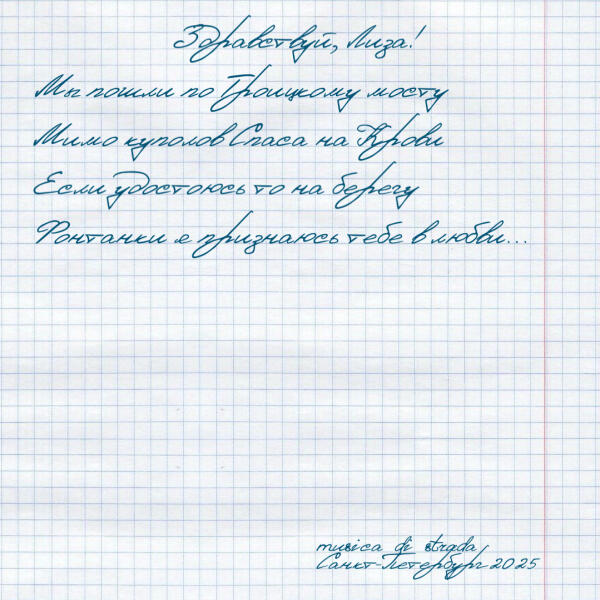 Здравствуй, Лиза!
Мы пошли по Троицкому мосту
Мимо куполов Спаса на Крови
Если удостоюсь то на берегу
Фонтанки я признаюсь тебе в любви...
musica di strada
Санкт-Петербург 2025